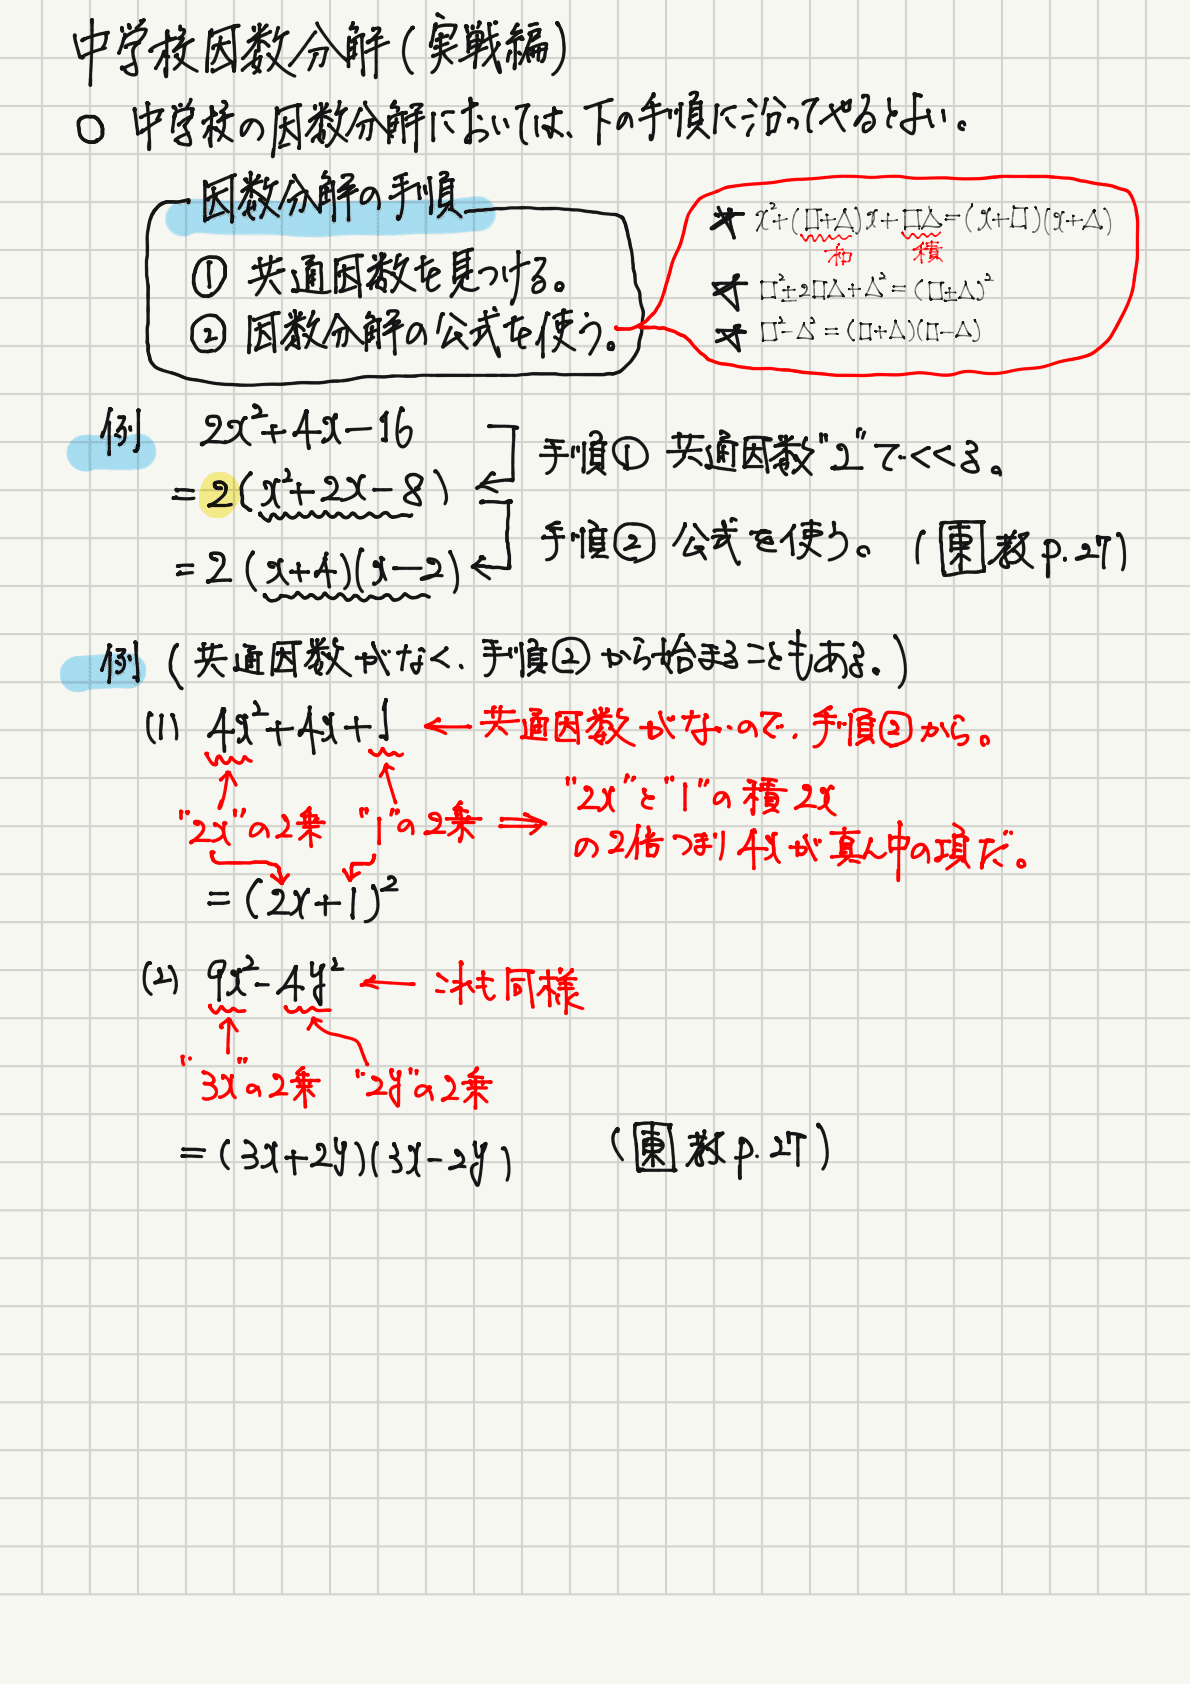 中学校因数分解(実戦編)
○ 中学校の因数分解においては、下の手順に沿ってやるとよい。
因数分解の手順
① 共通因数を見つける。
② 因数分解の公式を使う。
★ x²+(□+△)x+□△=(x+□)(x+△)
和 積
★ □²±2□△+△²=(□±△)²
★ □²-△²=(□+△)(□-△)
例 2x²+4x-16
手順① 共通因数"2"でくくる。
=2(x²+2x-8)
手順② 公式を使う。 (東 教p.27)
=2(x+4)(x-2)
例 (共通因数がなく、手順②から始まることもある。)
(1) 4x²+4x+1 ← 共通因数がないので、手順②から。
"2x"の2乗 "1"の2乗 ⇒ "2x"と"1"の積2x
の2倍つまり4xが真ん中の項だ。
=(2x+1)²
(2) 9x²-4y² ← これも同様
"3x"の2乗 "2y"の2乗
=(3x+2y)(3x-2y) (東 教p.27)